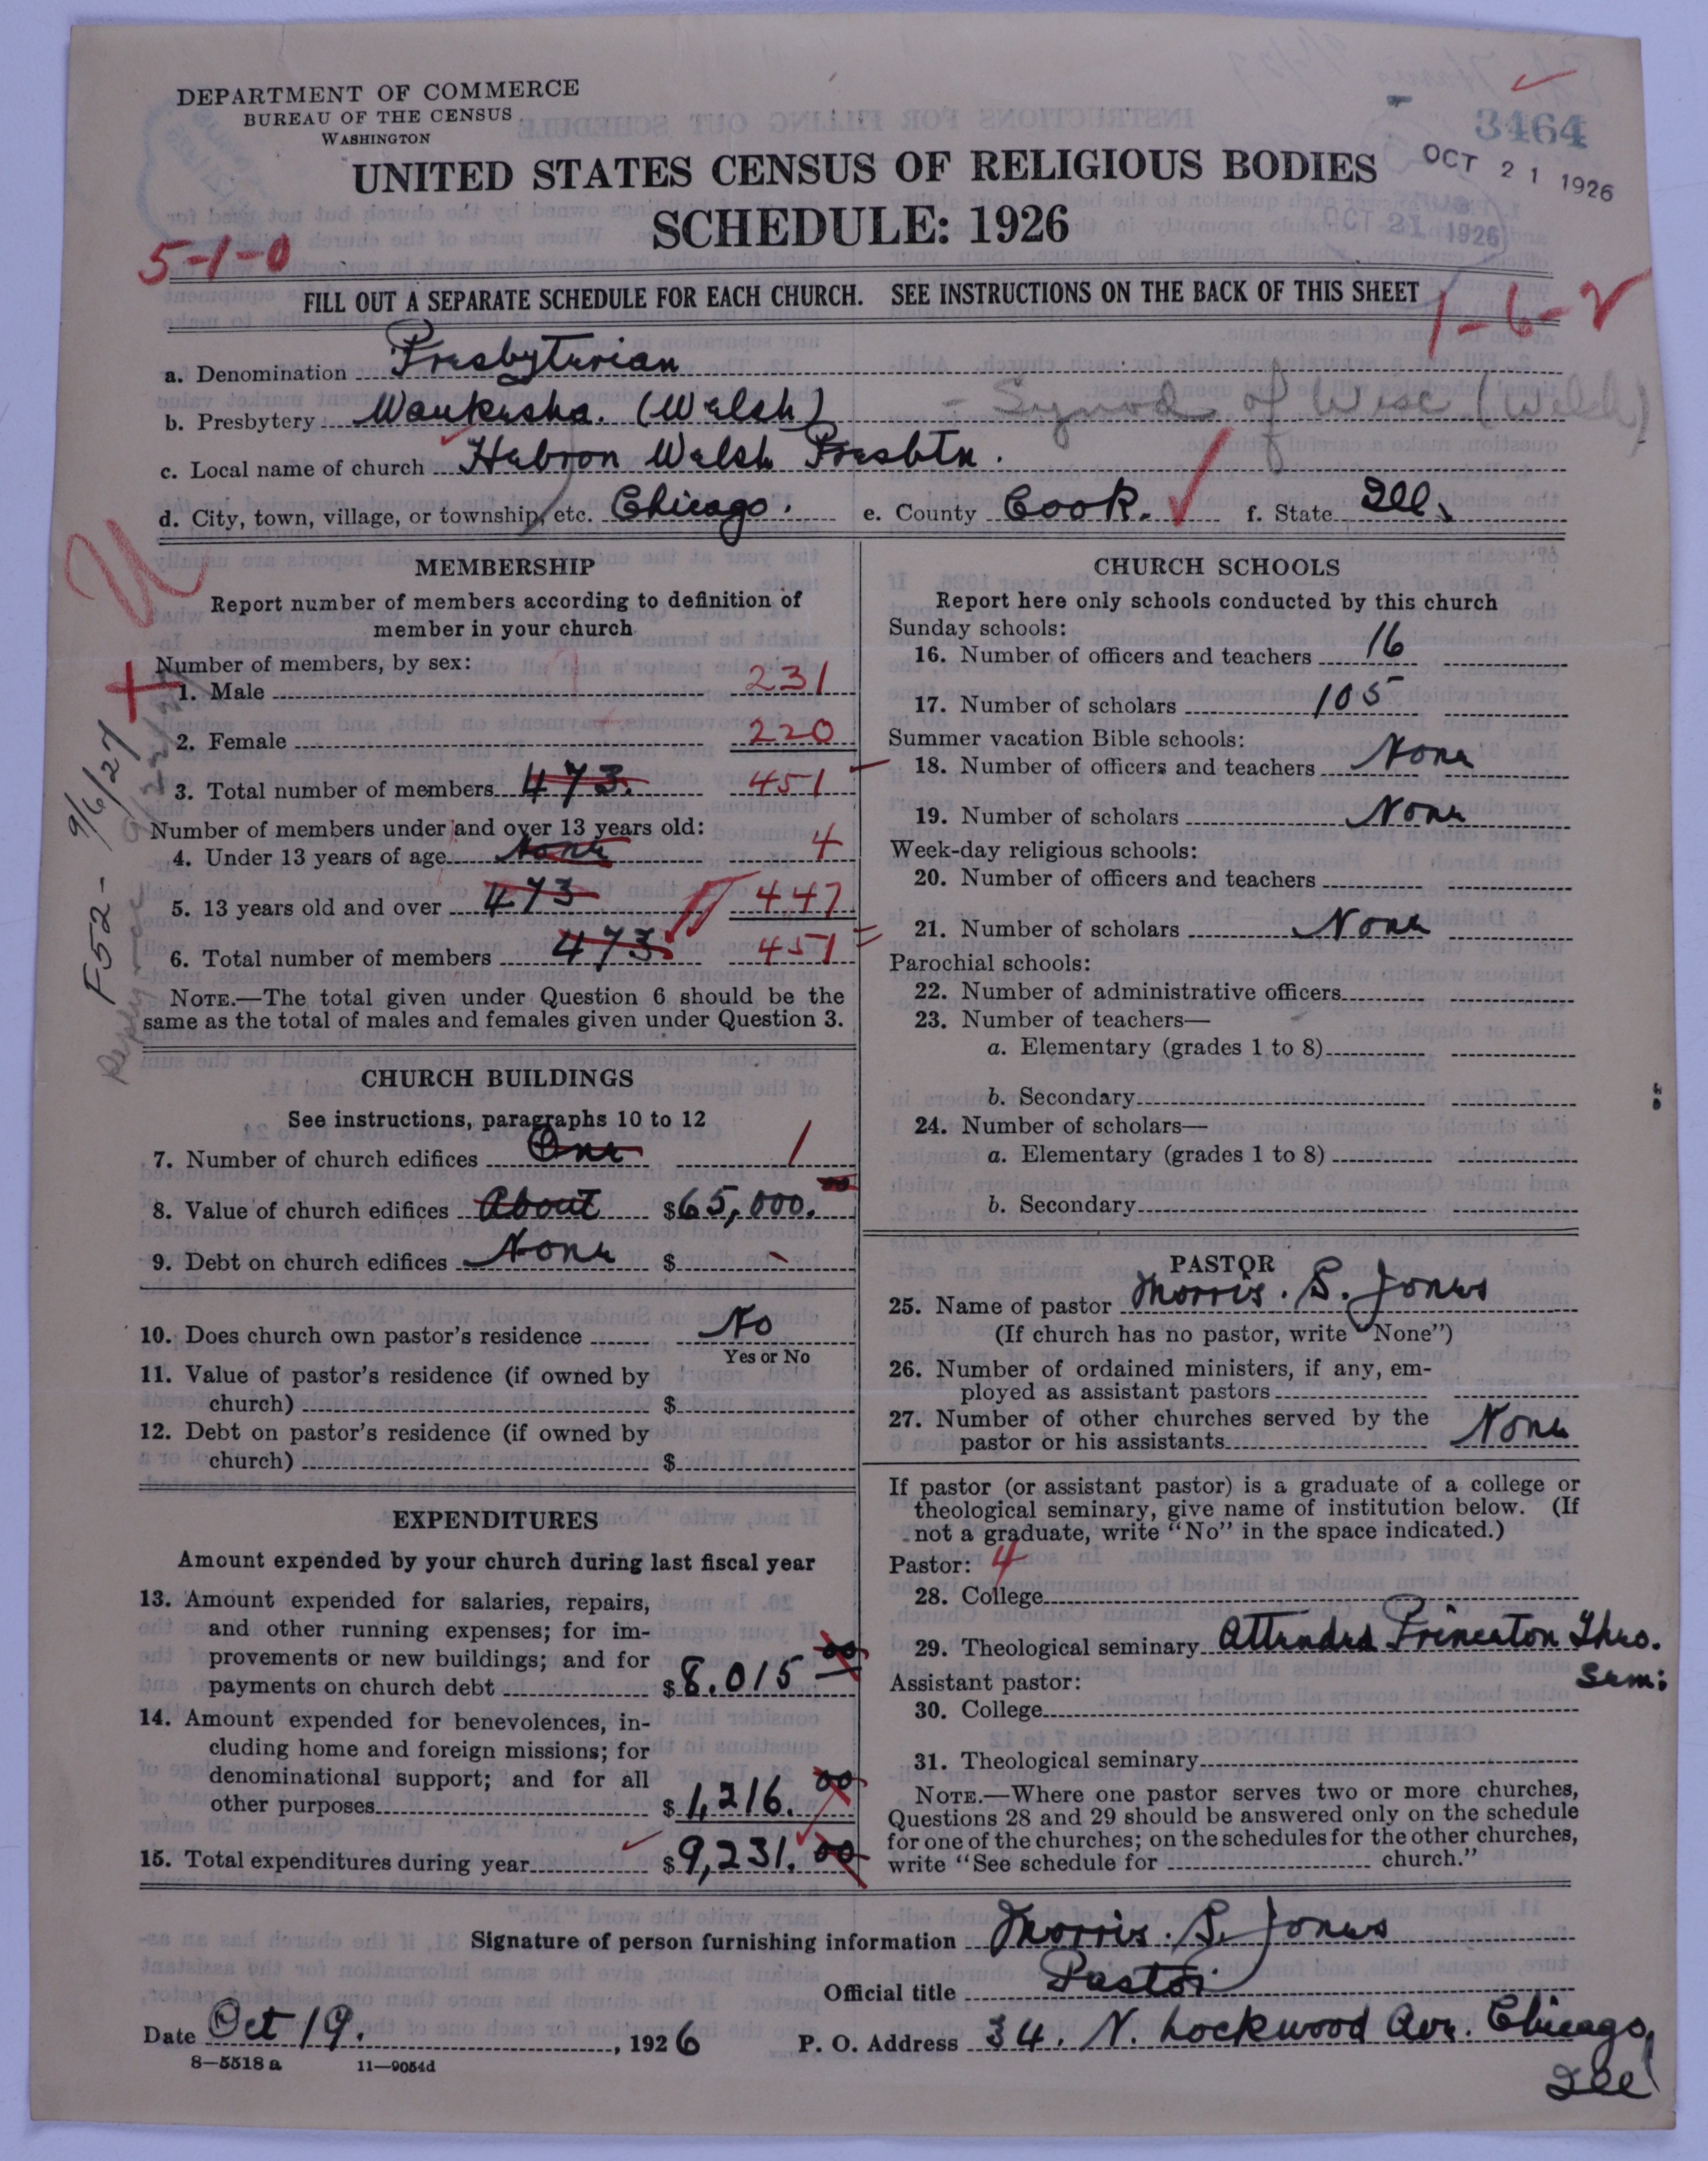 DEPARTMENT OF COMMERCE
BUREAU OF THE CENSUS
WASHINGTON
3464
OCT 21 1926
OCT 21 1926
UNITED STATES CENSUS OF RELIGIOUS BODIES
SCHEDULE: 1926
5-1-0
FILL OUT A SEPARATE SCHEDULE FOR EACH CHURCH. SEE INSTRUCTIONS ON THE BACK OF THIS SHEET
1-6-2
a. Denomination Presbyterian
b. Presbytery Waukesha. (Welsh) - Synod of Wisc (Welsh)
c. Local name of church Hebron Welsh Presbtn.
d. City, town, village, or township, etc. Chicago. e. County Cook. f. State Ill.
MEMBERSHIP
Report number of members according to definition of
member in your church
Number of members, by sex:
1. Male 231
2. Female 220
3. Total number of members 473. 451
Number of members under and over 13 years old:
4. Under 13 years of age None 4
5. 13 years old and over 473 447
6. Total number of members 473 451
NOTE.—The total given under Question 6 should be the
same as the total of males and females given under Question 3.
F52 - 9/6/27
CHURCH BUILDINGS
See instructions, paragraphs 10 to 12
7. Number of church edifices One 1
8. Value of church edifices About $65,000.
9. Debt on church edifices None $
10. Does church own pastor's residence No
Yes or No
11. Value of pastor's residence (if owned by
church) $
12. Debt on pastor's residence (if owned by
church) $
EXPENDITURES
Amount expended by your church during last fiscal year
13. Amount expended for salaries, repairs,
and other running expenses; for im-
provements or new buildings; and for
payments on church debt $8,015 00
14. Amount expended for benevolences, in-
cluding home and foreign missions; for
denominational support; and for all
other purposes $1,216. 00
15. Total expenditures during year $9,231. 00
CHURCH SCHOOLS
Report here only schools conducted by this church
Sunday schools:
16. Number of officers and teachers 16
17. Number of scholars 105
Summer vacation Bible schools:
18. Number of officers and teachers None
19. Number of scholars None
Week-day religious schools:
20. Number of officers and teachers
21. Number of scholars None
Parochial schools:
22. Number of administrative officers
23. Number of teachers—
a. Elementary (grades 1 to 8)
b. Secondary
24. Number of scholars—
a. Elementary (grades 1 to 8)
b. Secondary
PASTOR
25. Name of pastor Morris. S. Jones
(If church has no pastor, write "None")
26. Number of ordained ministers, if any, em-
ployed as assistant pastors
27. Number of other churches served by the
pastor or his assistants None
If pastor (or assistant pastor) is a graduate of a college or
theological seminary, give name of institution below. (If
not a graduate, write "No" in the space indicated.)
Pastor: 4
28. College
29. Theological seminary Attended Princeton Theo.
Sem:
Assistant pastor:
30. College
31. Theological seminary
NOTE.—Where one pastor serves two or more churches,
Questions 28 and 29 should be answered only on the schedule
for one of the churches; on the schedules for the other churches,
write "See schedule for church."
Signature of person furnishing information Morris. S. Jones
Official title Pastor
Date Oct 19., 1926 P. O. Address 34. N. Lockwood Ave. Chicago,
Ill
8—5518 a 11—9054d